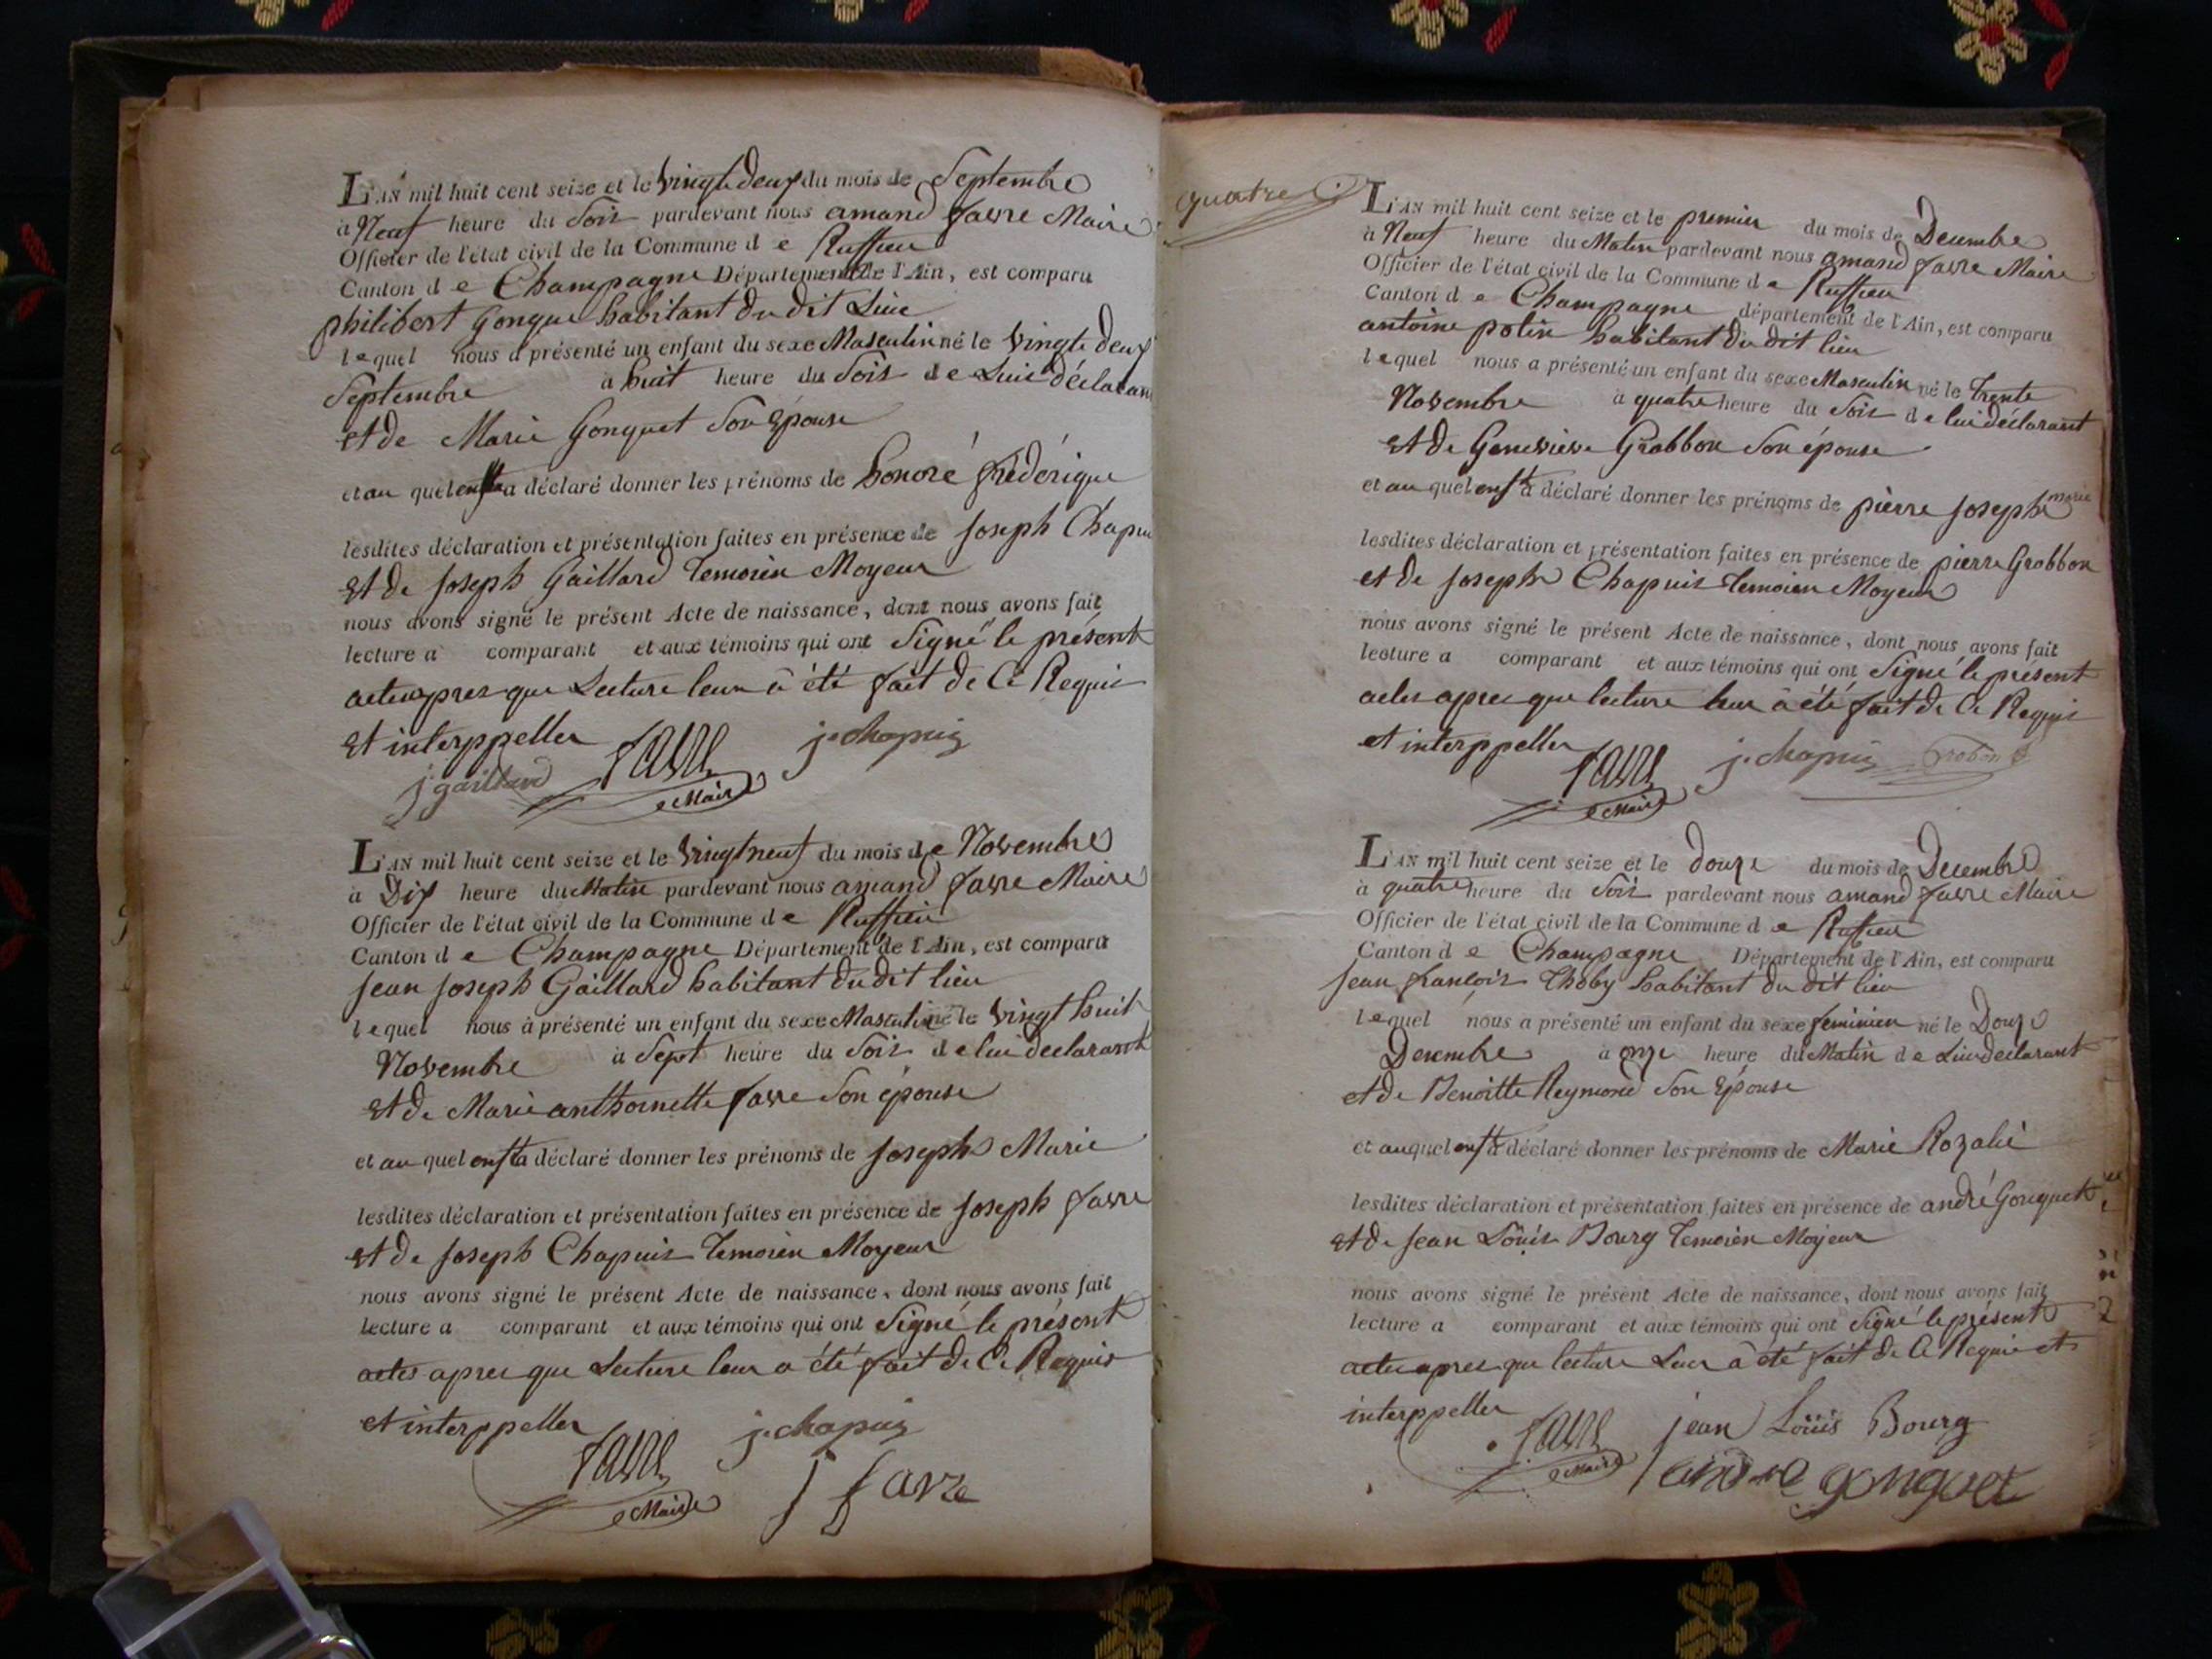 L'AN mil huit cent seize et le vingt deux du mois de Septembre
à Neuf heure du Soir pardevant nous amand favre Maire
Officier de l'état civil de la Commune d e Ruffieu
Canton d e Champagne Département de l'Ain, est comparu
philibert Gonguet habitant du dit Lieu
lequel nous a présenté un enfant du sexe Masculin né le vingt deux
Septembre à huit heure du Soir de Lui déclarant
et de Marie Gonguet Son Épouse
et au quel enft a déclaré donner les prénoms de honoré frédérique
lesdites déclaration et présentation faites en présence de Joseph Chapui
et de Joseph Gaillard Temoien Moyeur
nous avons signé le présent Acte de naissance, dont nous avons fait
lecture a comparant et aux témoins qui ont Signé le présent
actes apres que Lecture leur à été fait de Ce Requis
et interppeller
j gaillard favre Maire j. chapuis
L'AN mil huit cent seize et le vingt neuf du mois d e Novembre
à Dix heure du Matin pardevant nous amand favre Maire
Officier de l'état civil de la Commune d e Ruffieu
Canton d e Champagne Département de l'Ain, est comparu
Jean Joseph Gaillard habitant du dit lieu
lequel nous à présenté un enfant du sexe Masculin né le vingt huit
Novembre à Sept heure du Soir d e lui declarant
et de Marie anthoinette favre Son épouse
et au quel enft a déclaré donner les prénoms de Joseph Marie
lesdites déclaration et présentation faites en présence de Joseph favre
et de Joseph Chapuis Temoien Moyeur
nous avons signé le présent Acte de naissance, dont nous avons fait
lecture a comparant et aux témoins qui ont Signé le présent
actes apres que Lecture leur a été fait de Ce Requis
et interppeller
favre Maire j. chapuis
j favre
quatre
L'AN mil huit cent seize et le premier du mois de Decembre
à Neuf heure du Matin pardevant nous amand favre Maire
Officier de l'état civil de la Commune d e Ruffieu
Canton d e Champagne département de l'Ain, est comparu
antoine polin habitant du dit lieu
lequel nous a présenté un enfant du sexe Masculin né le trente
Novembre à quatre heure du Soir d e lui déclarant
et de Genevieve Grobbon Son épouse
et au quel enft à déclaré donner les prénoms de pierre Joseph marie
lesdites déclaration et présentation faites en présence de pierre Grobbon
et de Joseph Chapuis temoien Moyeur
nous avons signé le présent Acte de naissance, dont nous avons fait
lecture a comparant et aux témoins qui ont Signé le présent
actes apres que lecture leur à été fait de Ce Requis
et interppeller
favre Maire j. chapuis Grobon
L'AN mil huit cent seize et le douze du mois de Decembre
à quatre heure du Soir pardevant nous amand favre Maire
Officier de l'état civil de la Commune d e Ruffieu
Canton d e Champagne Département de l'Ain, est comparu
Jean francois Thoby habitant du dit lieu
lequel nous a présenté un enfant du sexe feminien né le Douze
Decembre à onze heure du Matin d e Lui declarant
et de Benoitte Reymond Son Épouse
et auquel enft à déclaré donner les prénoms de Marie Rozalie
lesdites déclaration et présentation faites en présence de andré Gonguet
et de Jean Louis Bourg Temoien Moyeur
nous avons signé le présent Acte de naissance, dont nous avons fait
lecture a comparant et aux témoins qui ont Signé le présent
actes apres que lecture Leur à été fait de Ce Requis et
interppeller
favre Maire jean Loüis Bourg
andre gonguet